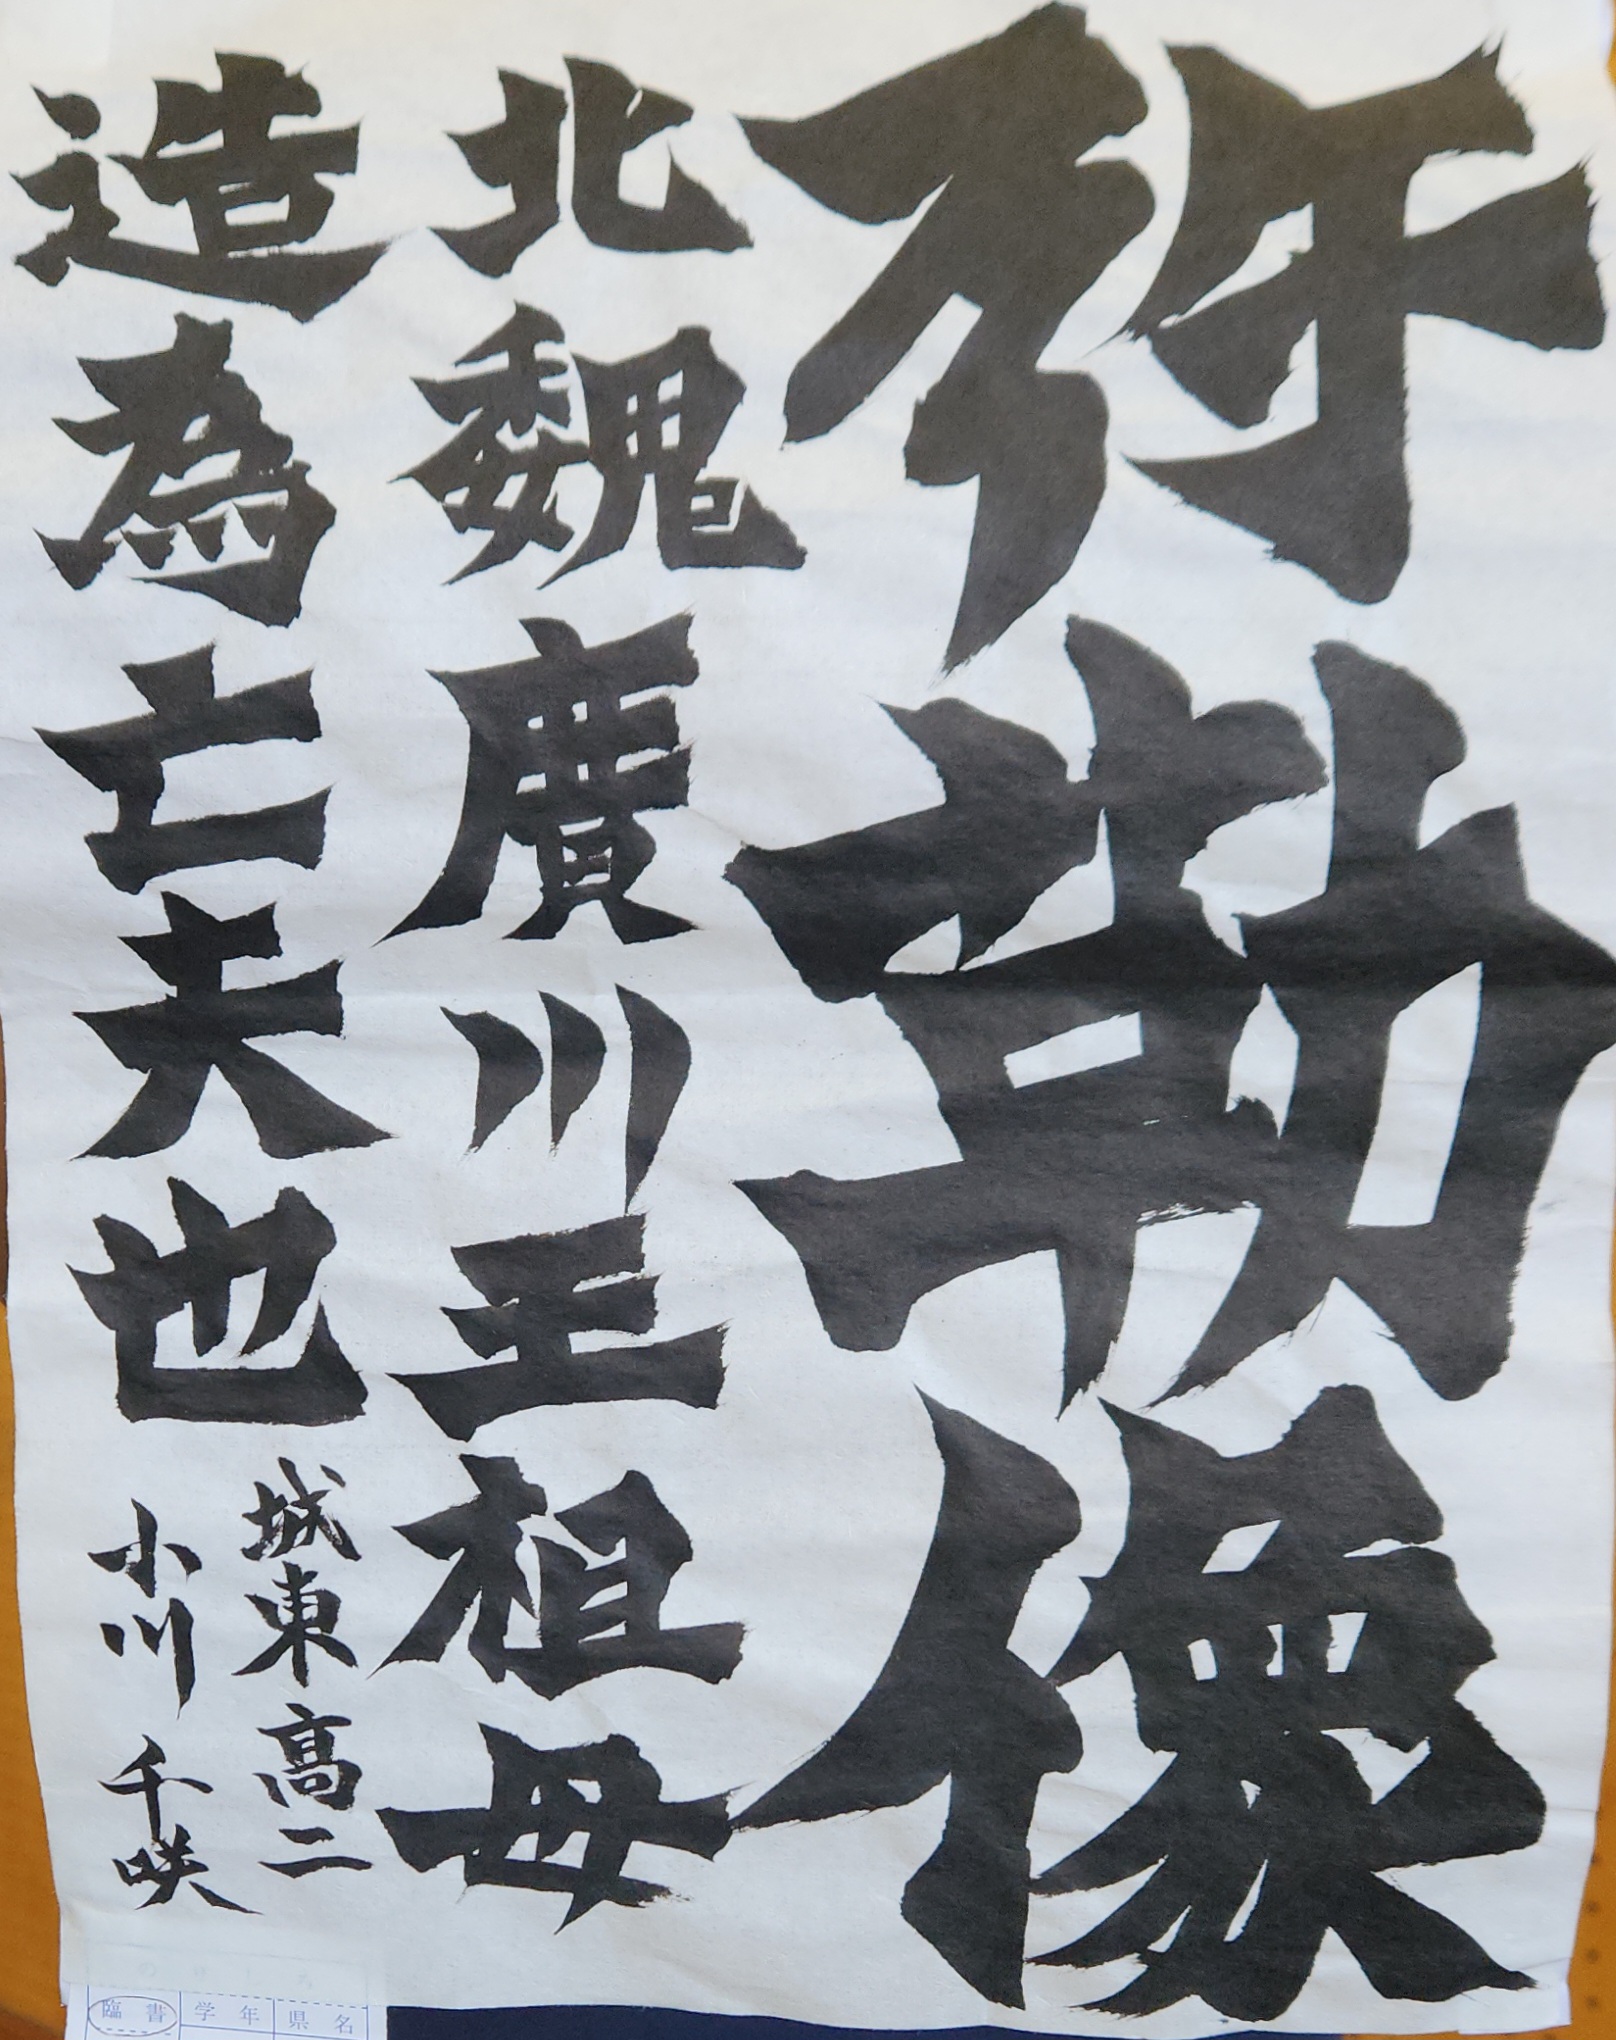 弥勒像
北魏廣川王祖母
造為亡夫也
城東高二
小川千咲
臨書 学年 県名